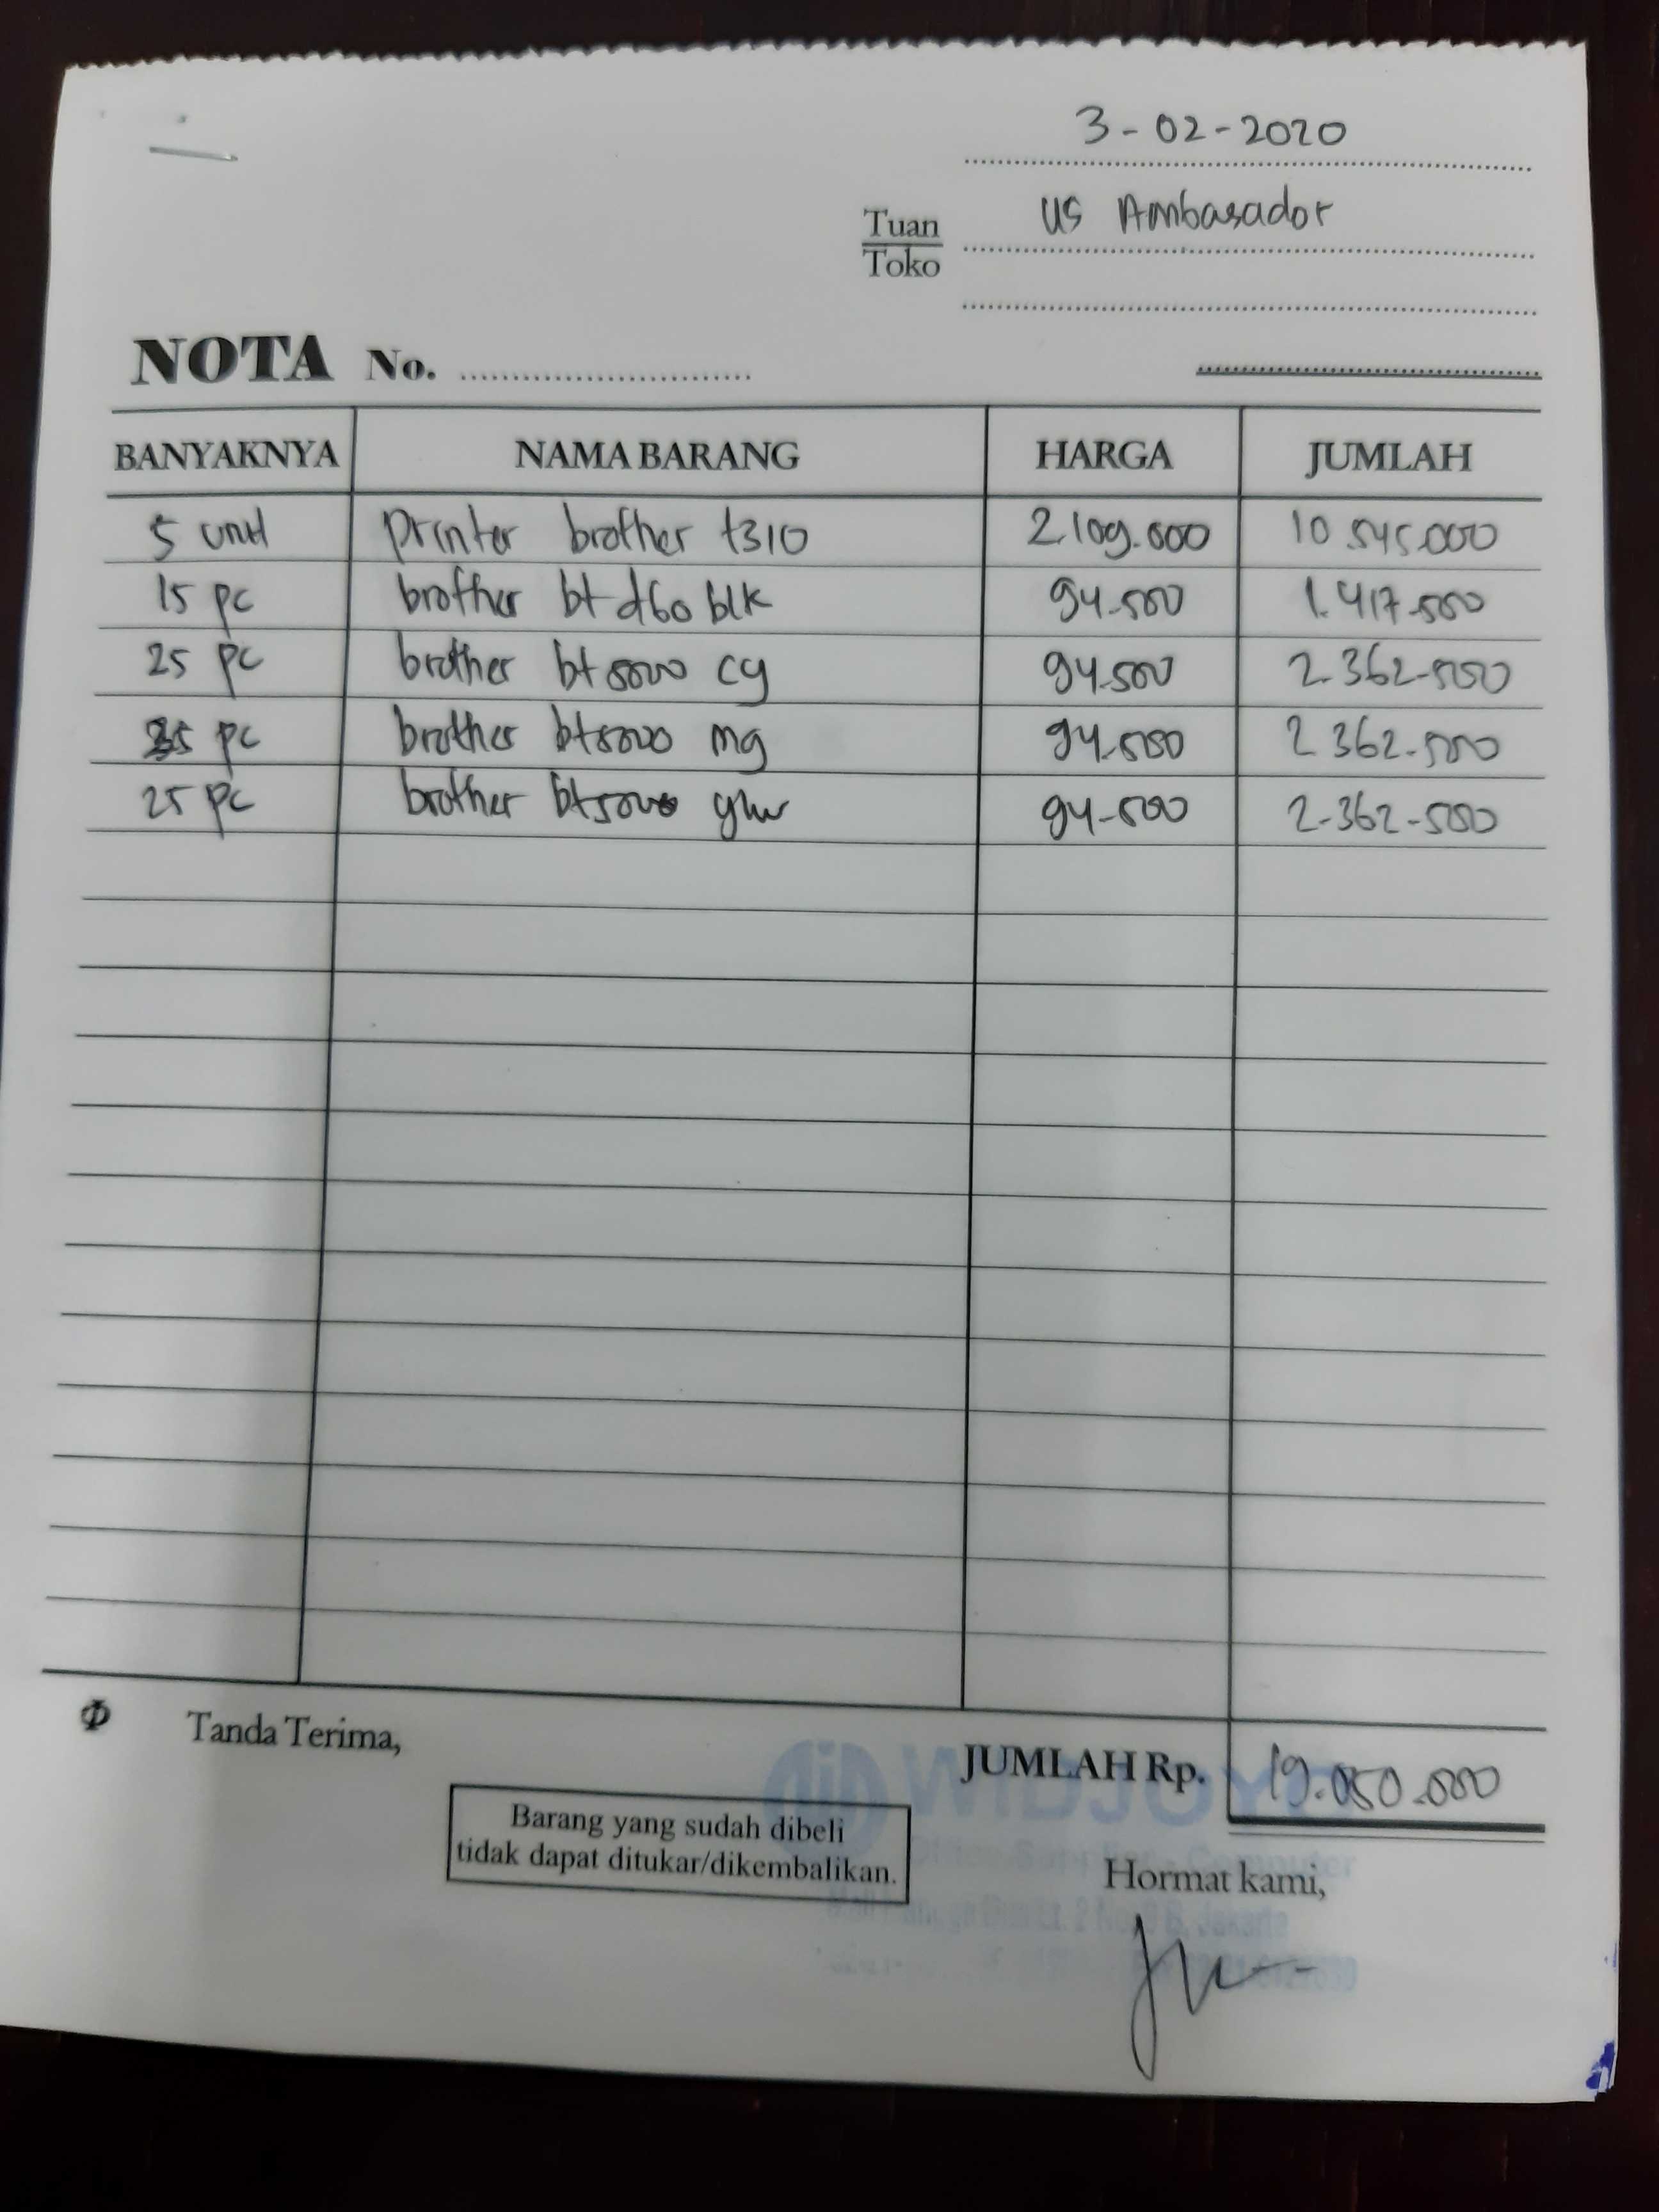 3-02-2020
Tuan
Toko
US Ambasador
NOTA No.
BANYAKNYA NAMA BARANG HARGA JUMLAH
5 unit printer brother t310 2.109.000 10.545.000
15 pc brother bt d60 blk 94.500 1.417.500
25 pc brother bt 5000 cy 94.500 2.362.500
25 pc brother bt5000 mg 94.500 2.362.500
25 pc brother bt5000 ylw 94.500 2.362.500
Tanda Terima,
JUMLAH Rp. 19.050.000
Barang yang sudah dibeli
tidak dapat ditukar/dikembalikan.
WIDJOYO
Office Supplier - Computer
Hormat kami,
Lt. 2 No. B, Jakarta